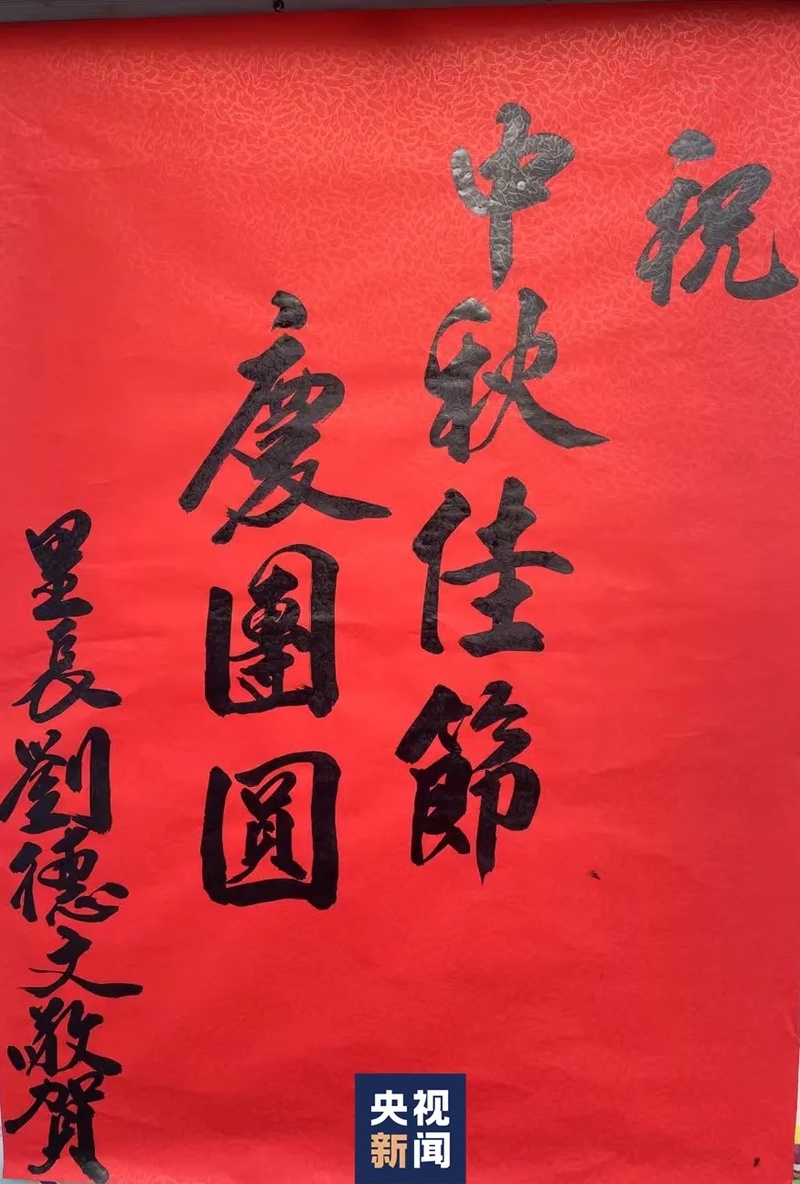 祝
中秋佳節
慶團圓
里長劉德文敬賀
央视
新闻